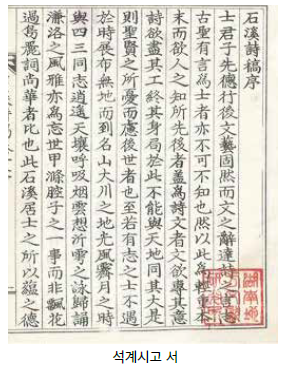 石溪詩稿序
士君子先德行後文藝固然而文之辭達詩之言志
古聖有言爲士者亦不可不知也然以此爲輕重本
末而欲人之知所先後者蓋爲詩文者文欲專其意
詩欲盡其工終其身局於此不能與天地同其大是
則聖賢之所憂而慮後世者也至若有志之士不遇
於時展布無地而到名山大川之地光風霽月之時
與四三同志逍遙天壤呼吸烟雲想沂雩之詠歸誦
濂洛之風雅亦爲忘世甲滌腔子之一事而非飄花
過鳥麗詞尚華者比也此石溪居士之所以蘊之德
석계시고 서